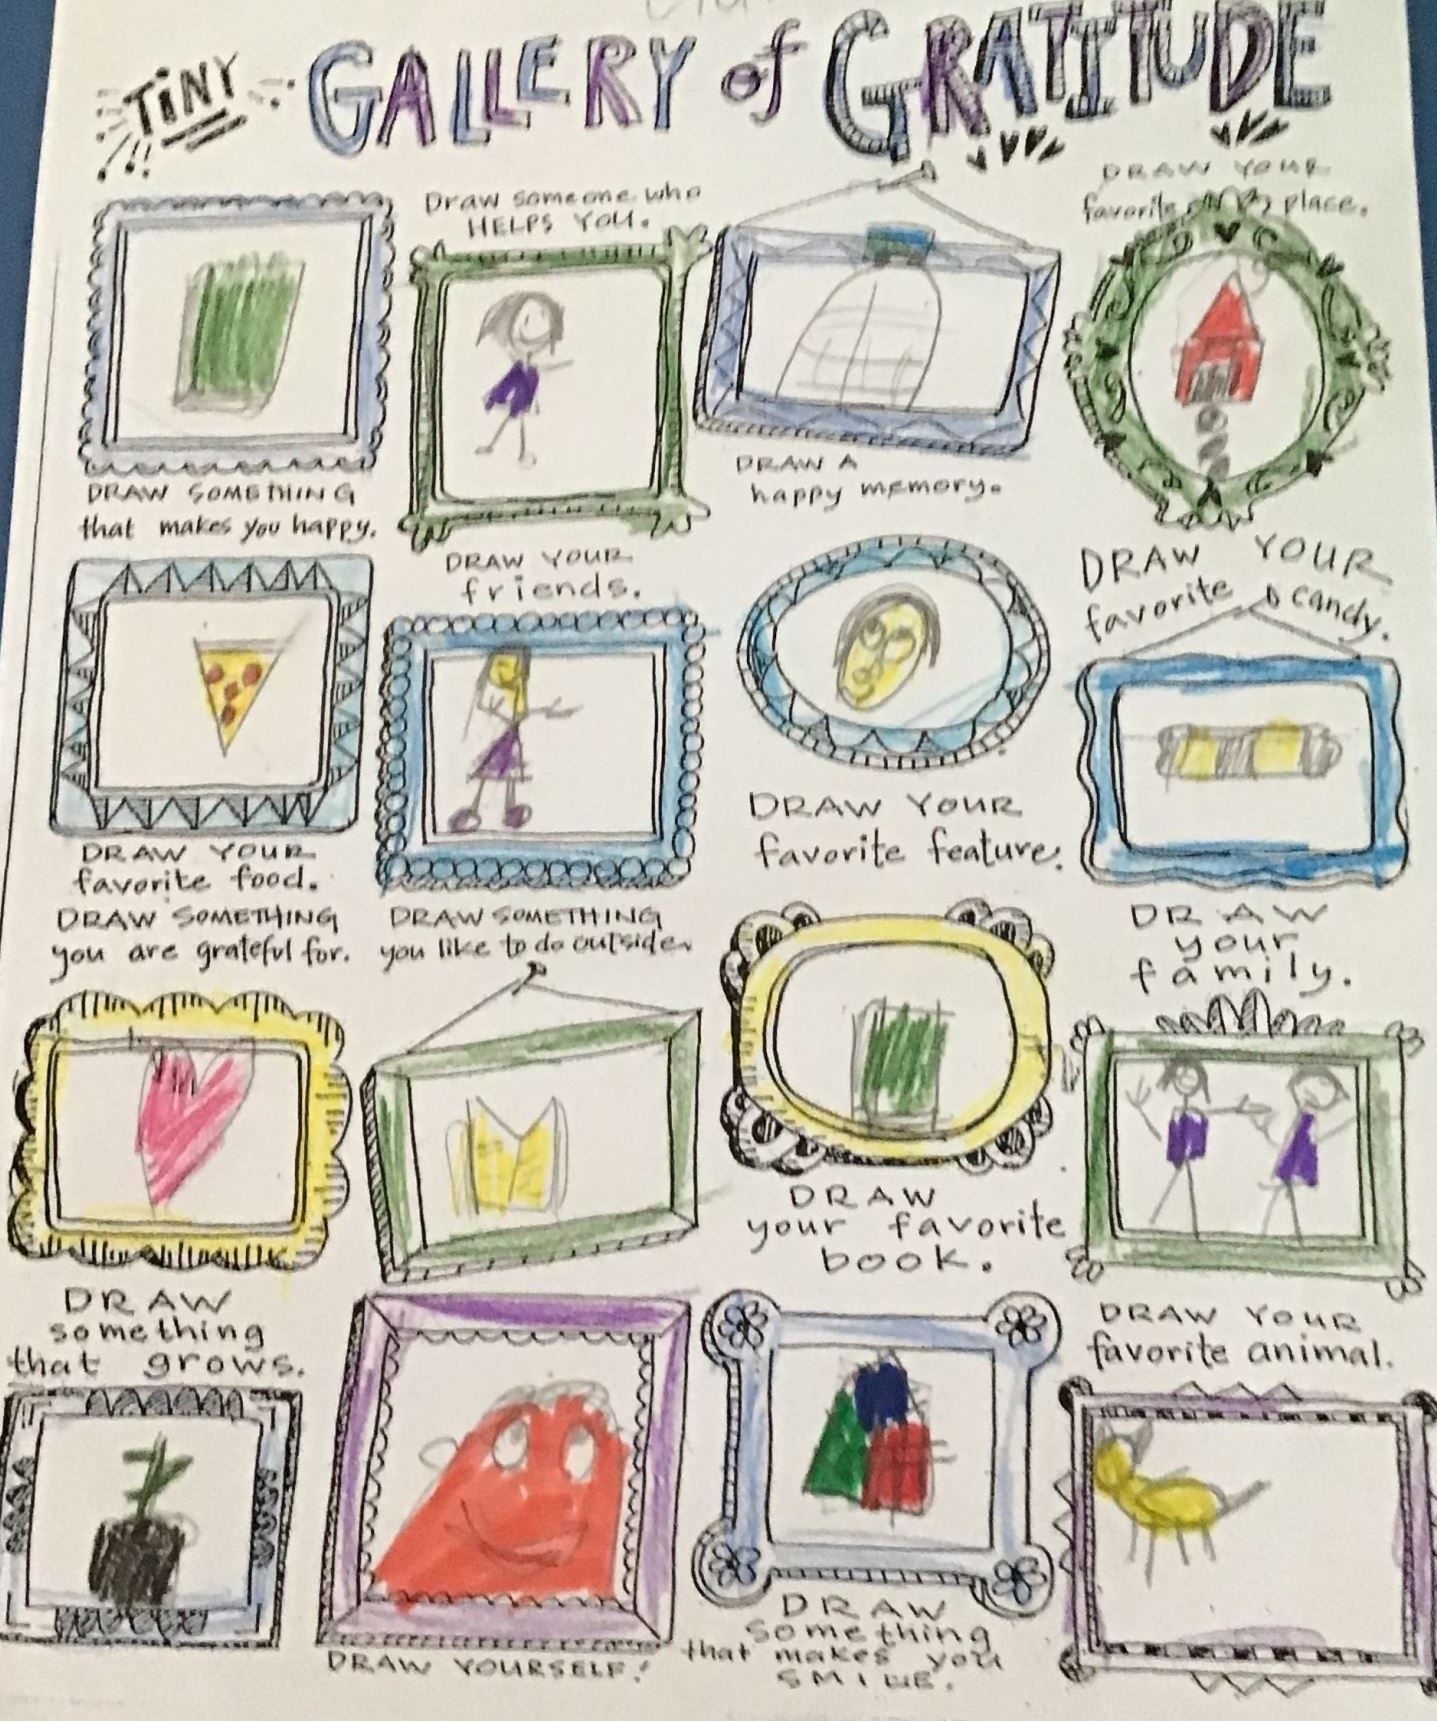 TINY GALLERY of GRATITUDE
Draw someone who
HELPS YOU.
DRAW YOUR
favorite place.
DRAW SOMETHING
that makes you happy.
DRAW A
happy memory.
DRAW YOUR
friends.
DRAW YOUR
favorite candy.
DRAW YOUR
favorite food.
DRAW YOUR
favorite feature.
DRAW SOMETHING
you are grateful for.
DRAW SOMETHING
you like to do outside.
DRAW
your
family.
DRAW
your favorite
book.
DRAW
something
that grows.
DRAW YOUR
favorite animal.
DRAW YOURSELF!
DRAW
something
that makes you
SMILE.